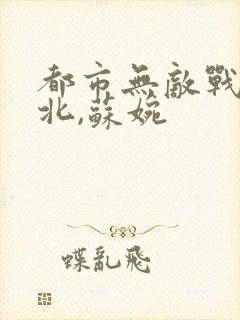 都市無敵戰
北,蘇婉
蝶亂飛